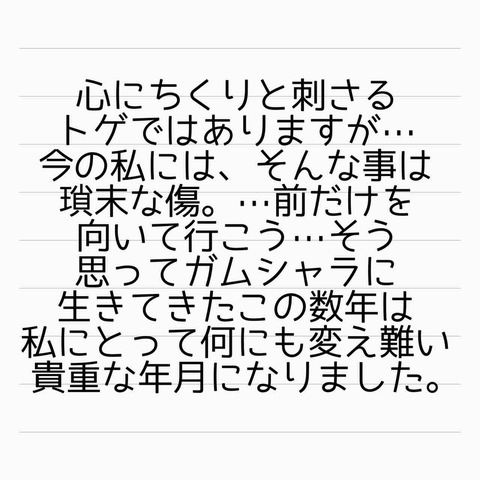 心にちくりと刺さる
トゲではありますが…
今の私には、そんな事は
瑣末な傷。…前だけを
向いて行こう…そう
思ってガムシャラに
生きてきたこの数年は
私にとって何にも変え難い
貴重な年月になりました。